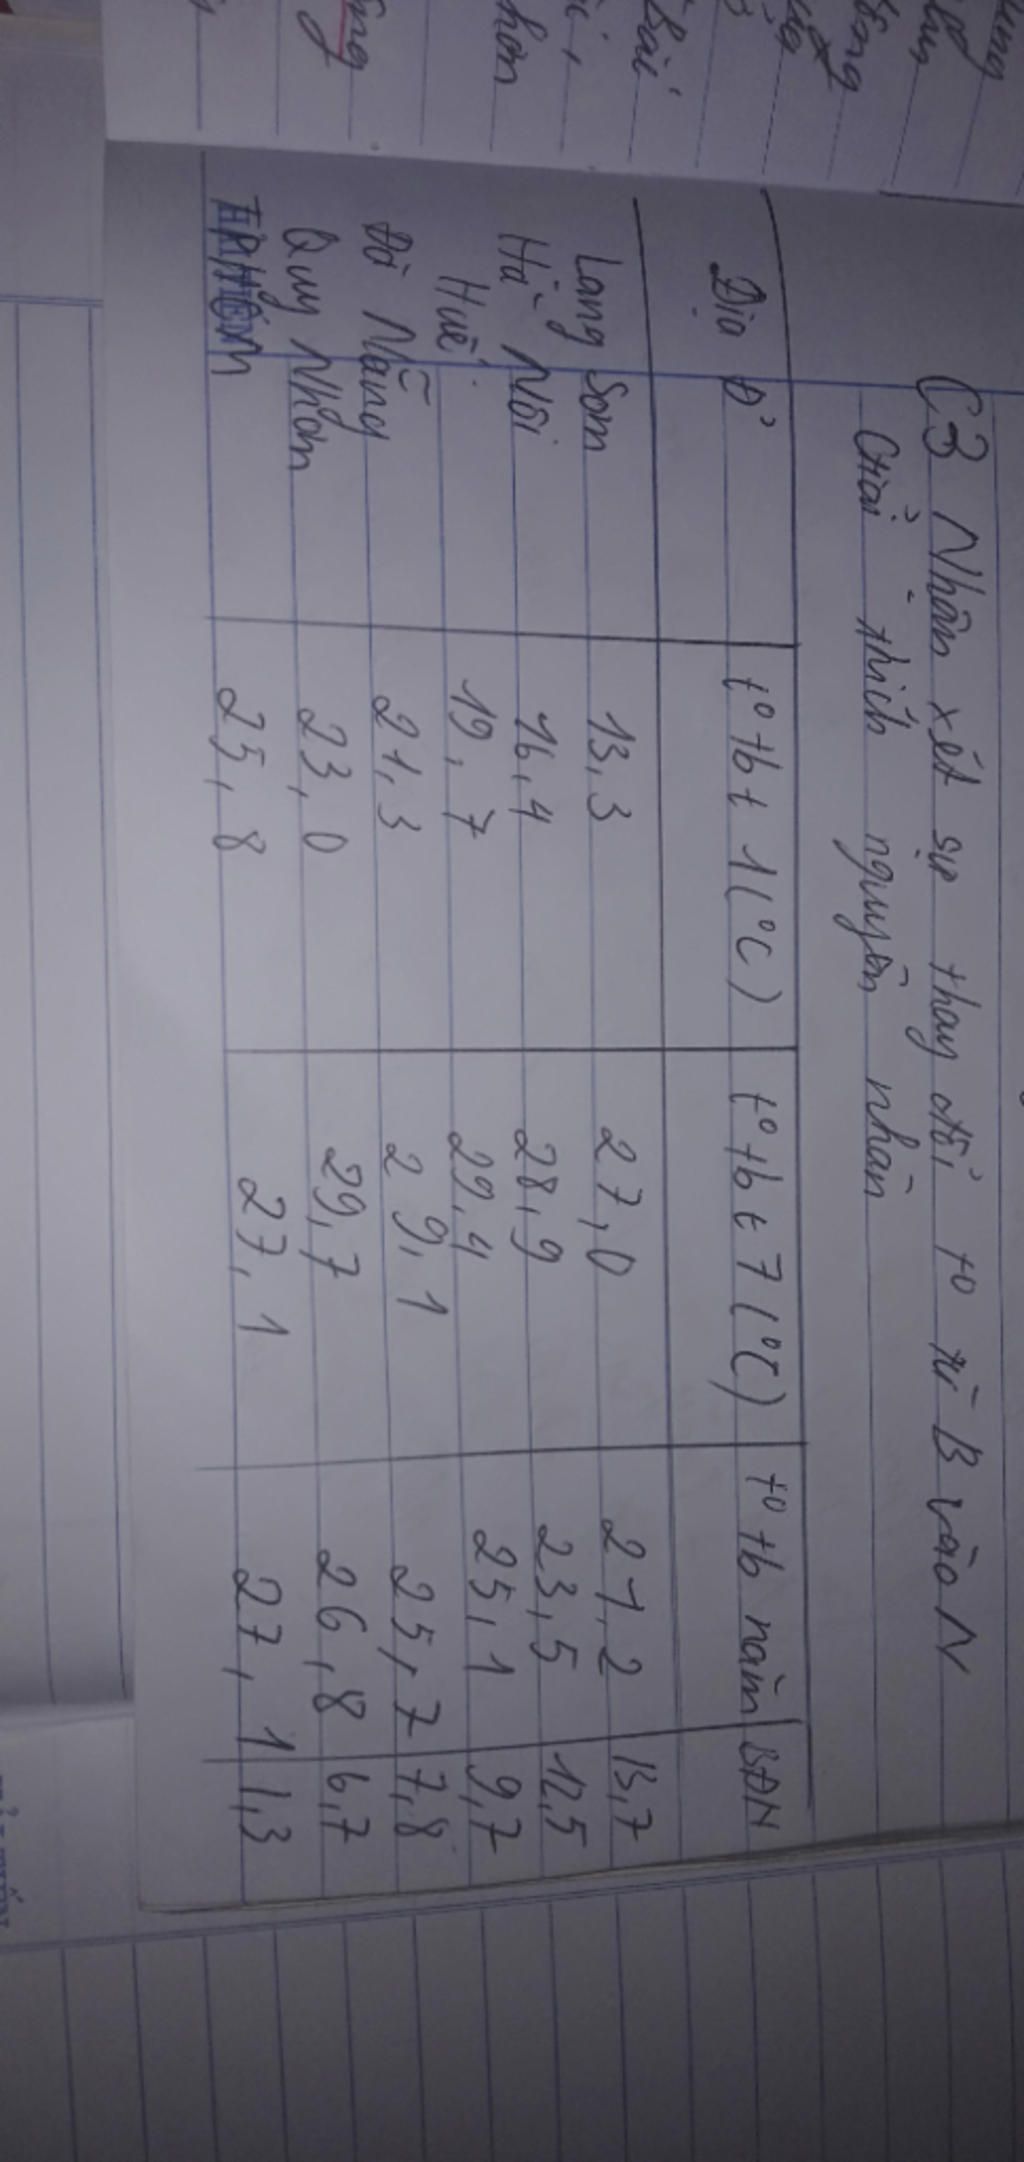 C3 Nhận xét sự thay đổi to từ B vào N
Giải thích nguyên nhân
Địa Đ' t° tb t 1 (°C) t° tb t 7 (°C) t° tb năm BĐN
Lạng Sơn 13,3 27,0 21,2 13,7
Hà Nội 16,4 28,9 23,5 12,5
Huế 19,7 29,4 25,1 9,7
Đà Nẵng 21,3 29,1 25,7 7,8
Quy Nhơn 23,0 29,7 26,8 6,7
TPHCM 25,8 27,1 27,1 1,3